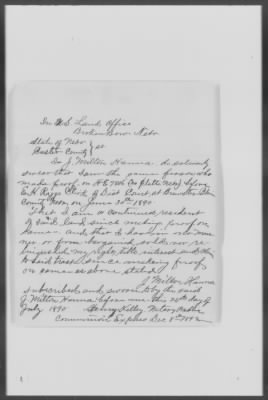 In U.S. Land Office
Broken Bow Nebr
State of Nebr
Custer County } ss
I J. Milton Hanna do solemnly
swear that I am the same person who
made proof on H E (No Platte Nebr) before
Clerk of Dist Court at
County Nebr, on June 20th 1890
That I am a continued resident
of said land since making proof on
same. And that I have in no man-
ner or form bargained sold nor re-
linquished my right, title interest and
to said tract since making proof
on same as above stated
J. Milton Hanna
Subscribed and sworn to by the said
J. Milton Hanna before me this 28th day of
July 1890 Henry Kelley Notary Public
Commission Expires Dec 1892